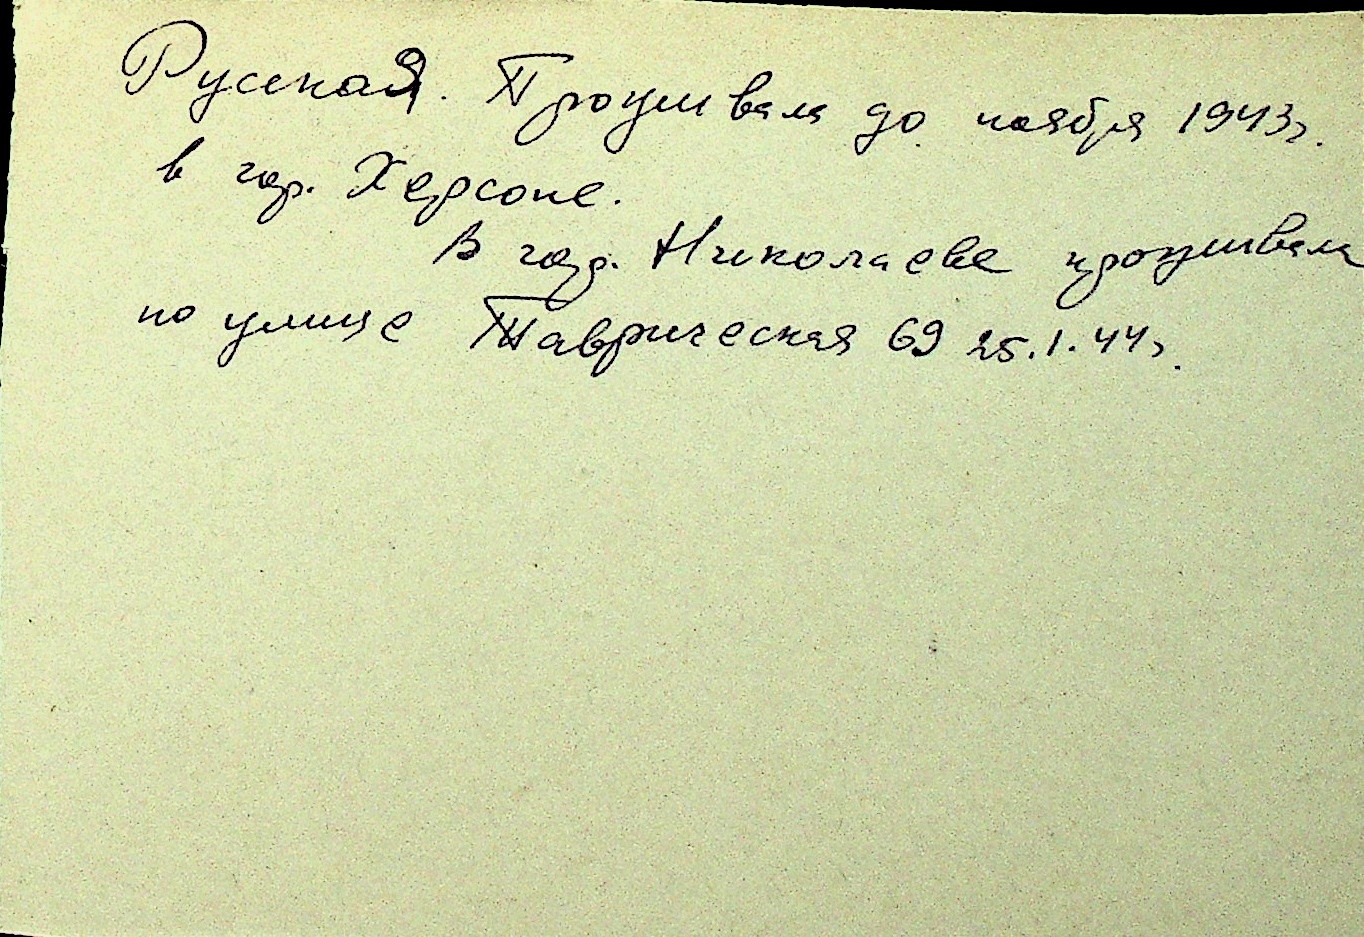 Русская. Проживала до ноября 1943г.
в гор. Херсоне.
В гор. Николаеве проживала
по улице Таврическая 69 25.1.44г.